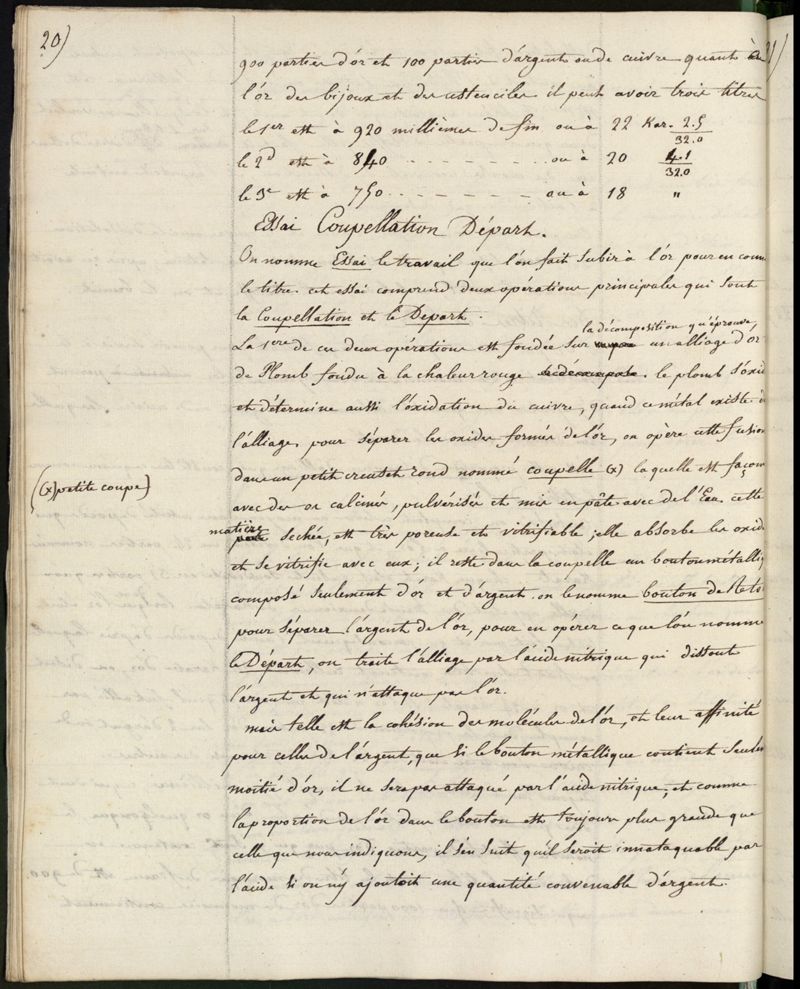 20)
900 parties d'or et 100 parties d'argent ou de cuivre quant à
l'or des bijoux et des ustenciles il peut avoir trois titres
le 1er est à 920 millièmes de fin ou à 22 Kar. 2.5/32.0
le 2d est à 840 - - - - - - - ou à 20 4.1/32.0
le 3e est à 750 - - - - - - - ou à 18 "
Essai Coupellation Départ.
On nomme Essai le travail que l'on fait subir à l'or pour en conn
le titre. cet essai comprend deux opérations principales qui sont
la Coupellation et le Depart.
la décomposition qu'éprouve,
La 1ere de ces deux opérations est fondée sur un alliage d'or
de Plomb fondu à la chaleur rouge se décompose. le plomb s'oxid
et détermine aussi l'oxidation du cuivre, quand ce métal existe
l'alliage, pour séparer les oxides formés de l'or, on opère cette fusion
dans un petit creuset rond nommé coupelle (x) la quelle est façonn
((x) petite coupe)
avec des os calcinés, pulvérisés et mis en pâte avec de l'Eau. cette
matière
pate sechée, est très poreuse et vitrifiable ; elle absorbe les oxid
et se vitrifie avec eux ; il reste dans la coupelle un bouton métalliq
composé seulement d'or et d'argent. on le nomme bouton de Reto
pour séparer l'argent de l'or, pour en opérer ce que l'on nomme
le Départ, on traite l'alliage par l'acide nitrique qui dissout
l'argent et qui n'attaque pas l'or.
mais telle est la cohésion des molécules de l'or, et leur affinité
pour celles de l'argent, que si le bouton métallique contient seulem
moitié d'or, il ne sera pas attaqué par l'acide nitrique, et comme
la proportion de l'or dans le bouton est toujours plus grande que
celle que nous indiquons, il s'en suit qu'il seroit innataquable par
l'acide si on n'y ajoutoit une quantité convenable d'argent.